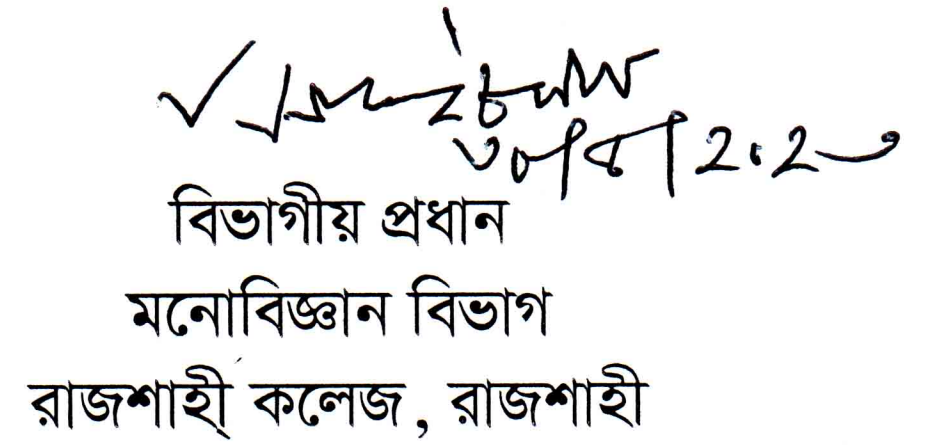 বিভাগীয় প্রধান
মনোবিজ্ঞান বিভাগ
রাজশাহী কলেজ, রাজশাহী